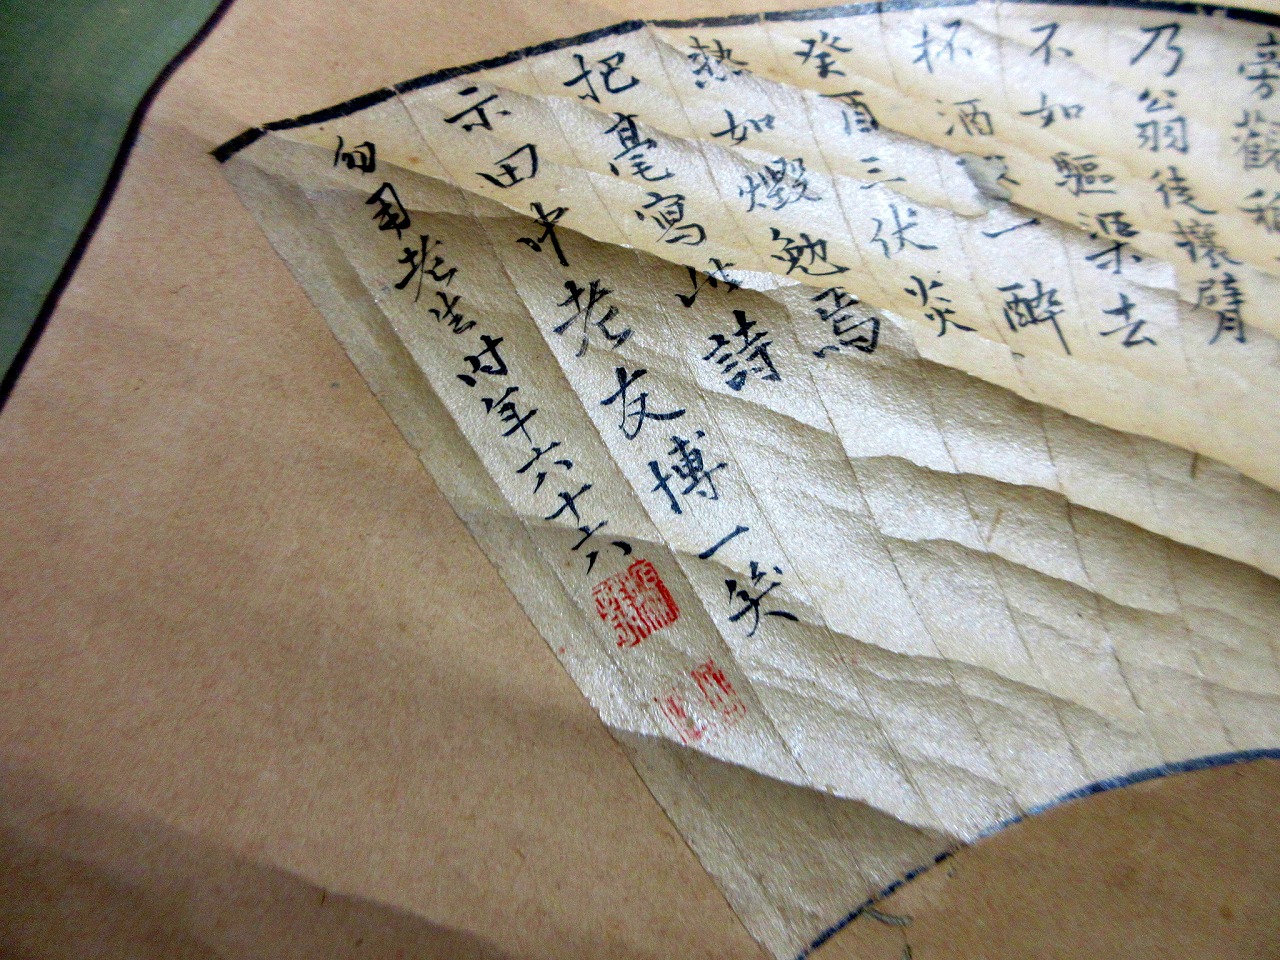 旁觀
乃翁後攘臂
不如驅渠去
杯酒一醉
癸酉三伏炎
熱如燬勉焉
把毫寫此詩
示田中老友博一笑
老生時年六十六